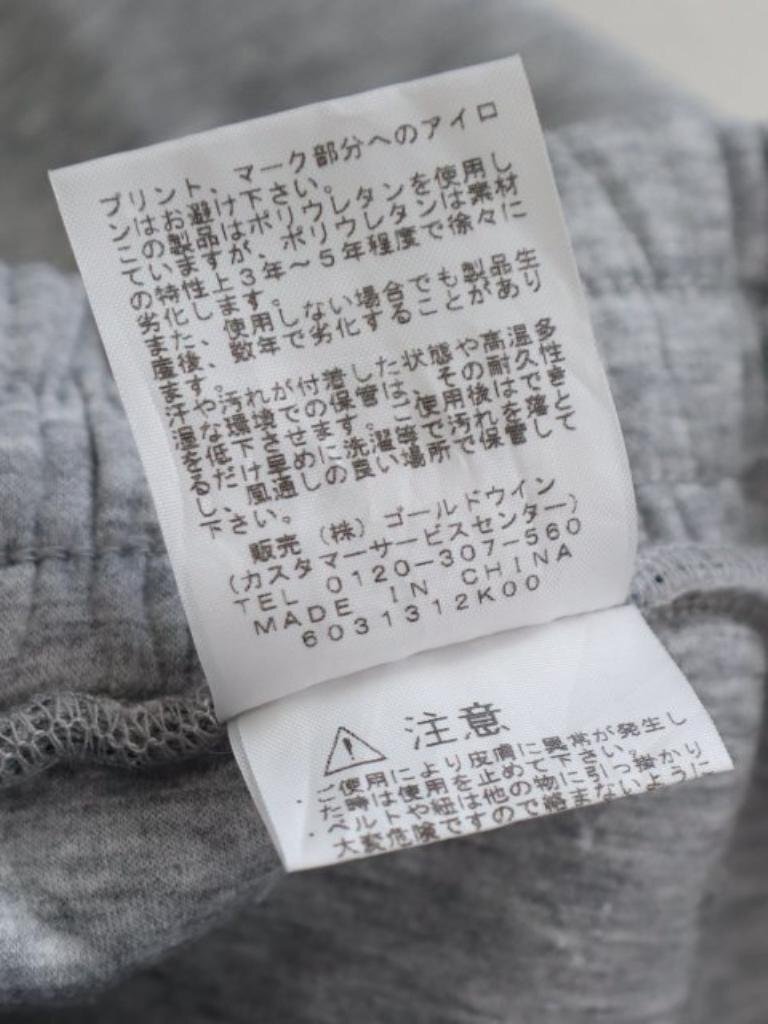 プリント、マーク部分へのアイロ
ンはお避け下さい。
この製品はポリウレタンを使用し
ていますが、ポリウレタンは素材
の特性上3年～5年程度で徐々に
劣化します。
また、使用しない場合でも製品生
産後、数年で劣化することがあり
ます。
汗や汚れが付着した状態や高温多
湿な環境での保管は、その耐久性
を低下させます。ご使用後はでき
るだけ早めに洗濯等で汚れを落と
し、風通しの良い場所で保管して
下さい。
販売 (株) ゴールドウイン
(カスタマーサービスセンター)
TEL 0120-307-560
MADE IN CHINA
6031312K00
注意
・ご使用により皮膚に異常が発生し
た時は使用を止めて下さい。
・ベルトや紐は他の物に引っ掛かり
大変危険ですので絡まないように